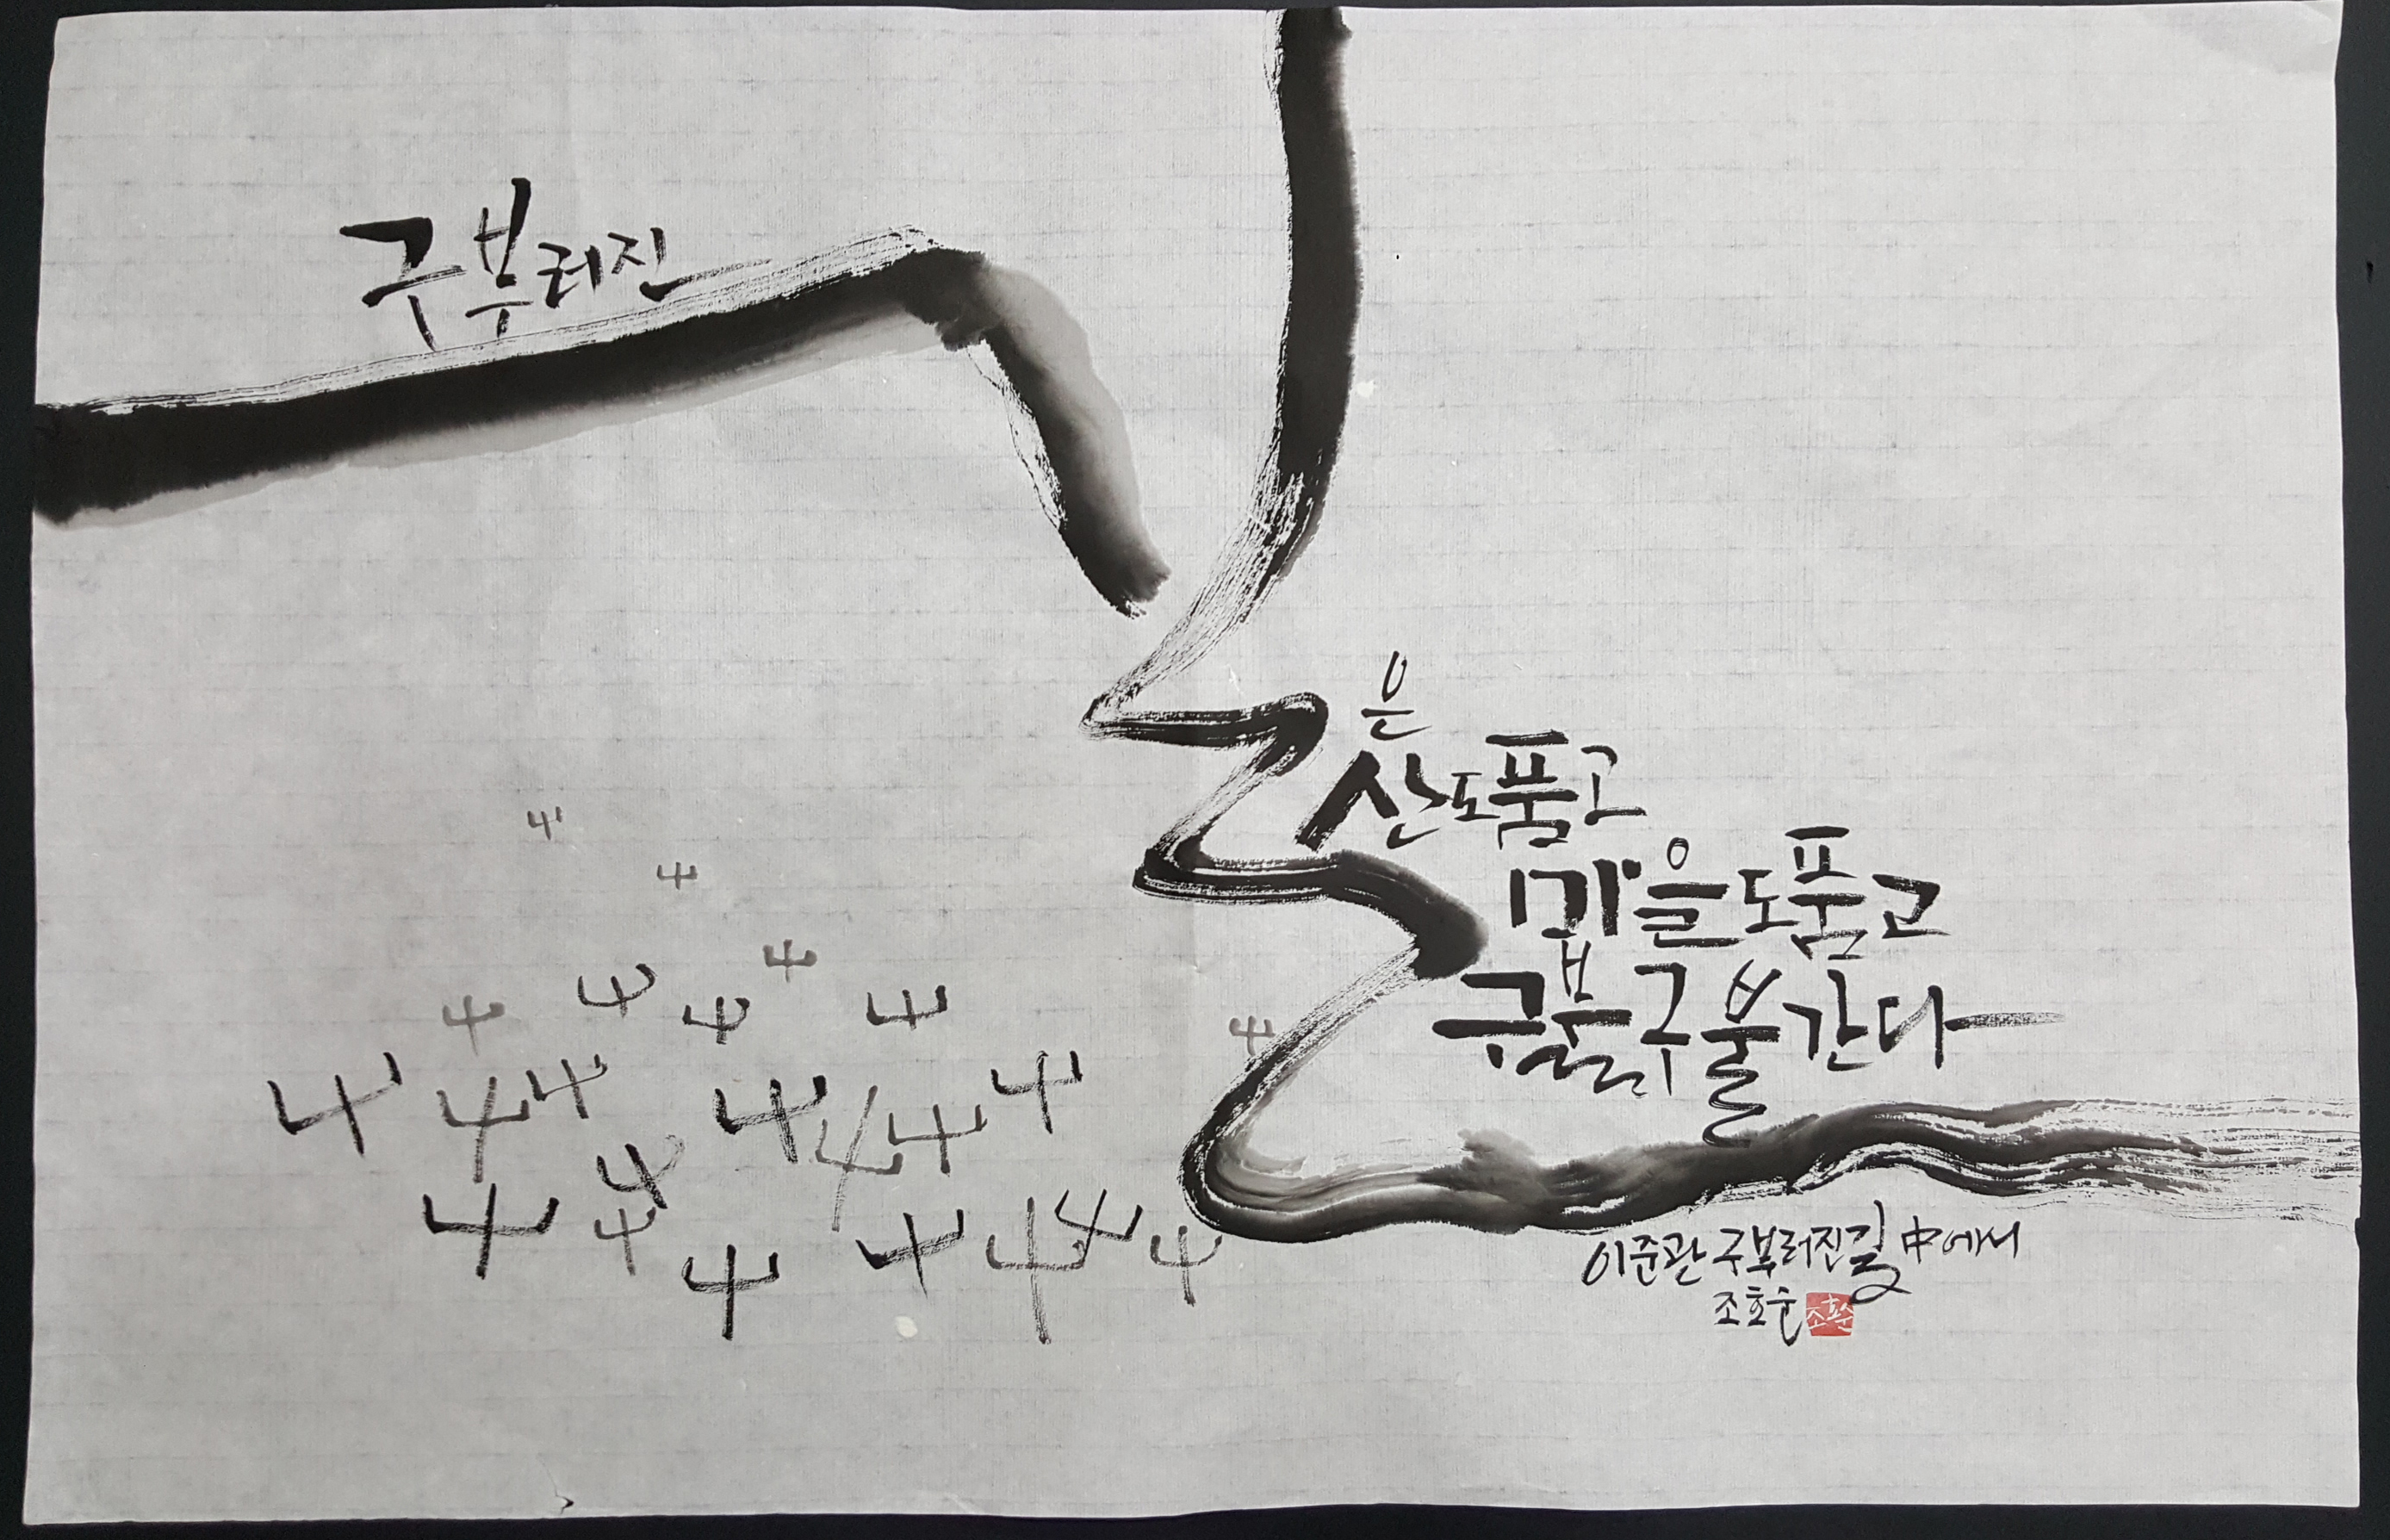 구부러진
길
은
산도품고
마을도품고
구불구불간다
이준관 구부러진길 中에서
조호순